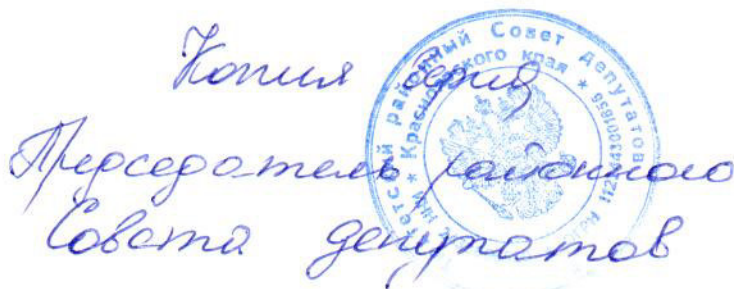 Копия верна
Председатель районного
Совета депутатов
районный Совет депутатов
* Красноярского края *